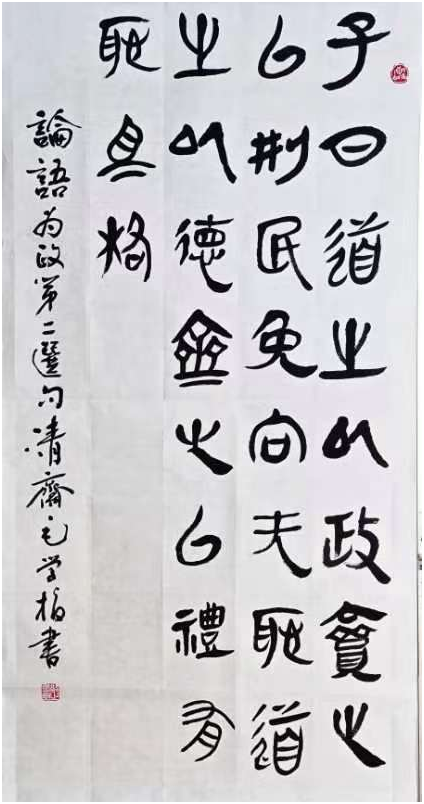 子曰道之以政齊之
以刑民免而无恥道
之以德齊之以禮有
恥且格
論語为政第二選句清齋毛学柏書